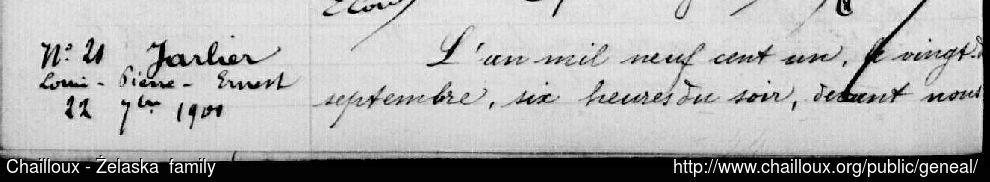 N° 21 Jarlier
Louis - Pierre - Ernest
22 7bre 1901
L'an mil neuf cent un, le vingt-
septembre, six heures du soir, devant nous
Chailloux - Żelaska family
http://www.chailloux.org/public/geneal/